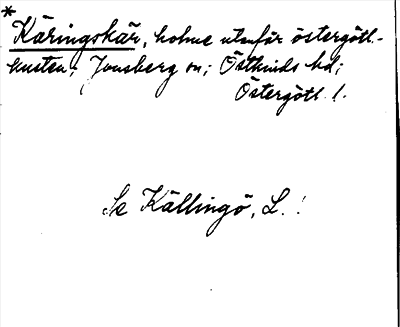 * Käringskär, holme utanför östergötl.-
kusten; Jonsberg sn; Östkinds hd;
Östergötl. l.
Se Källingö, L. !